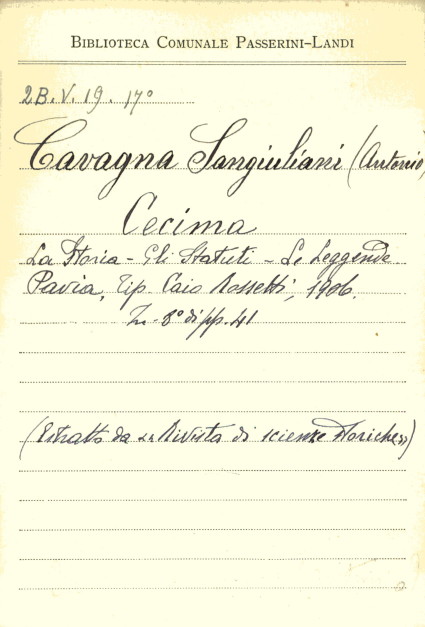 BIBLIOTECA COMUNALE PASSERINI-LANDI
2B.V. 19. 17°
Cavagna Sangiuliani (Antonio)
Cecima
La Storia - Gli Statuti - Le Leggende
Pavia, Tip. Caio Rossetti, 1906.
In-8° di pp. 41
(Estratto da «Rivista di scienze storiche»)